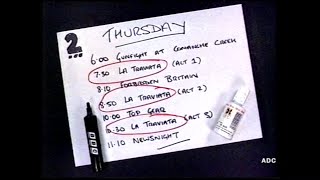 2
THURSDAY
6.00 GUNFIGHT AT COMANCHE CREEK
7.30 LA TRAVIATA (ACT 1)
8.10 FORBIDDEN BRITAIN
8.50 LA TRAVIATA (ACT 2)
10.00 TOP GEAR
10.30 LA TRAVIATA (ACT 3)
11.10 NEWSNIGHT
ADC